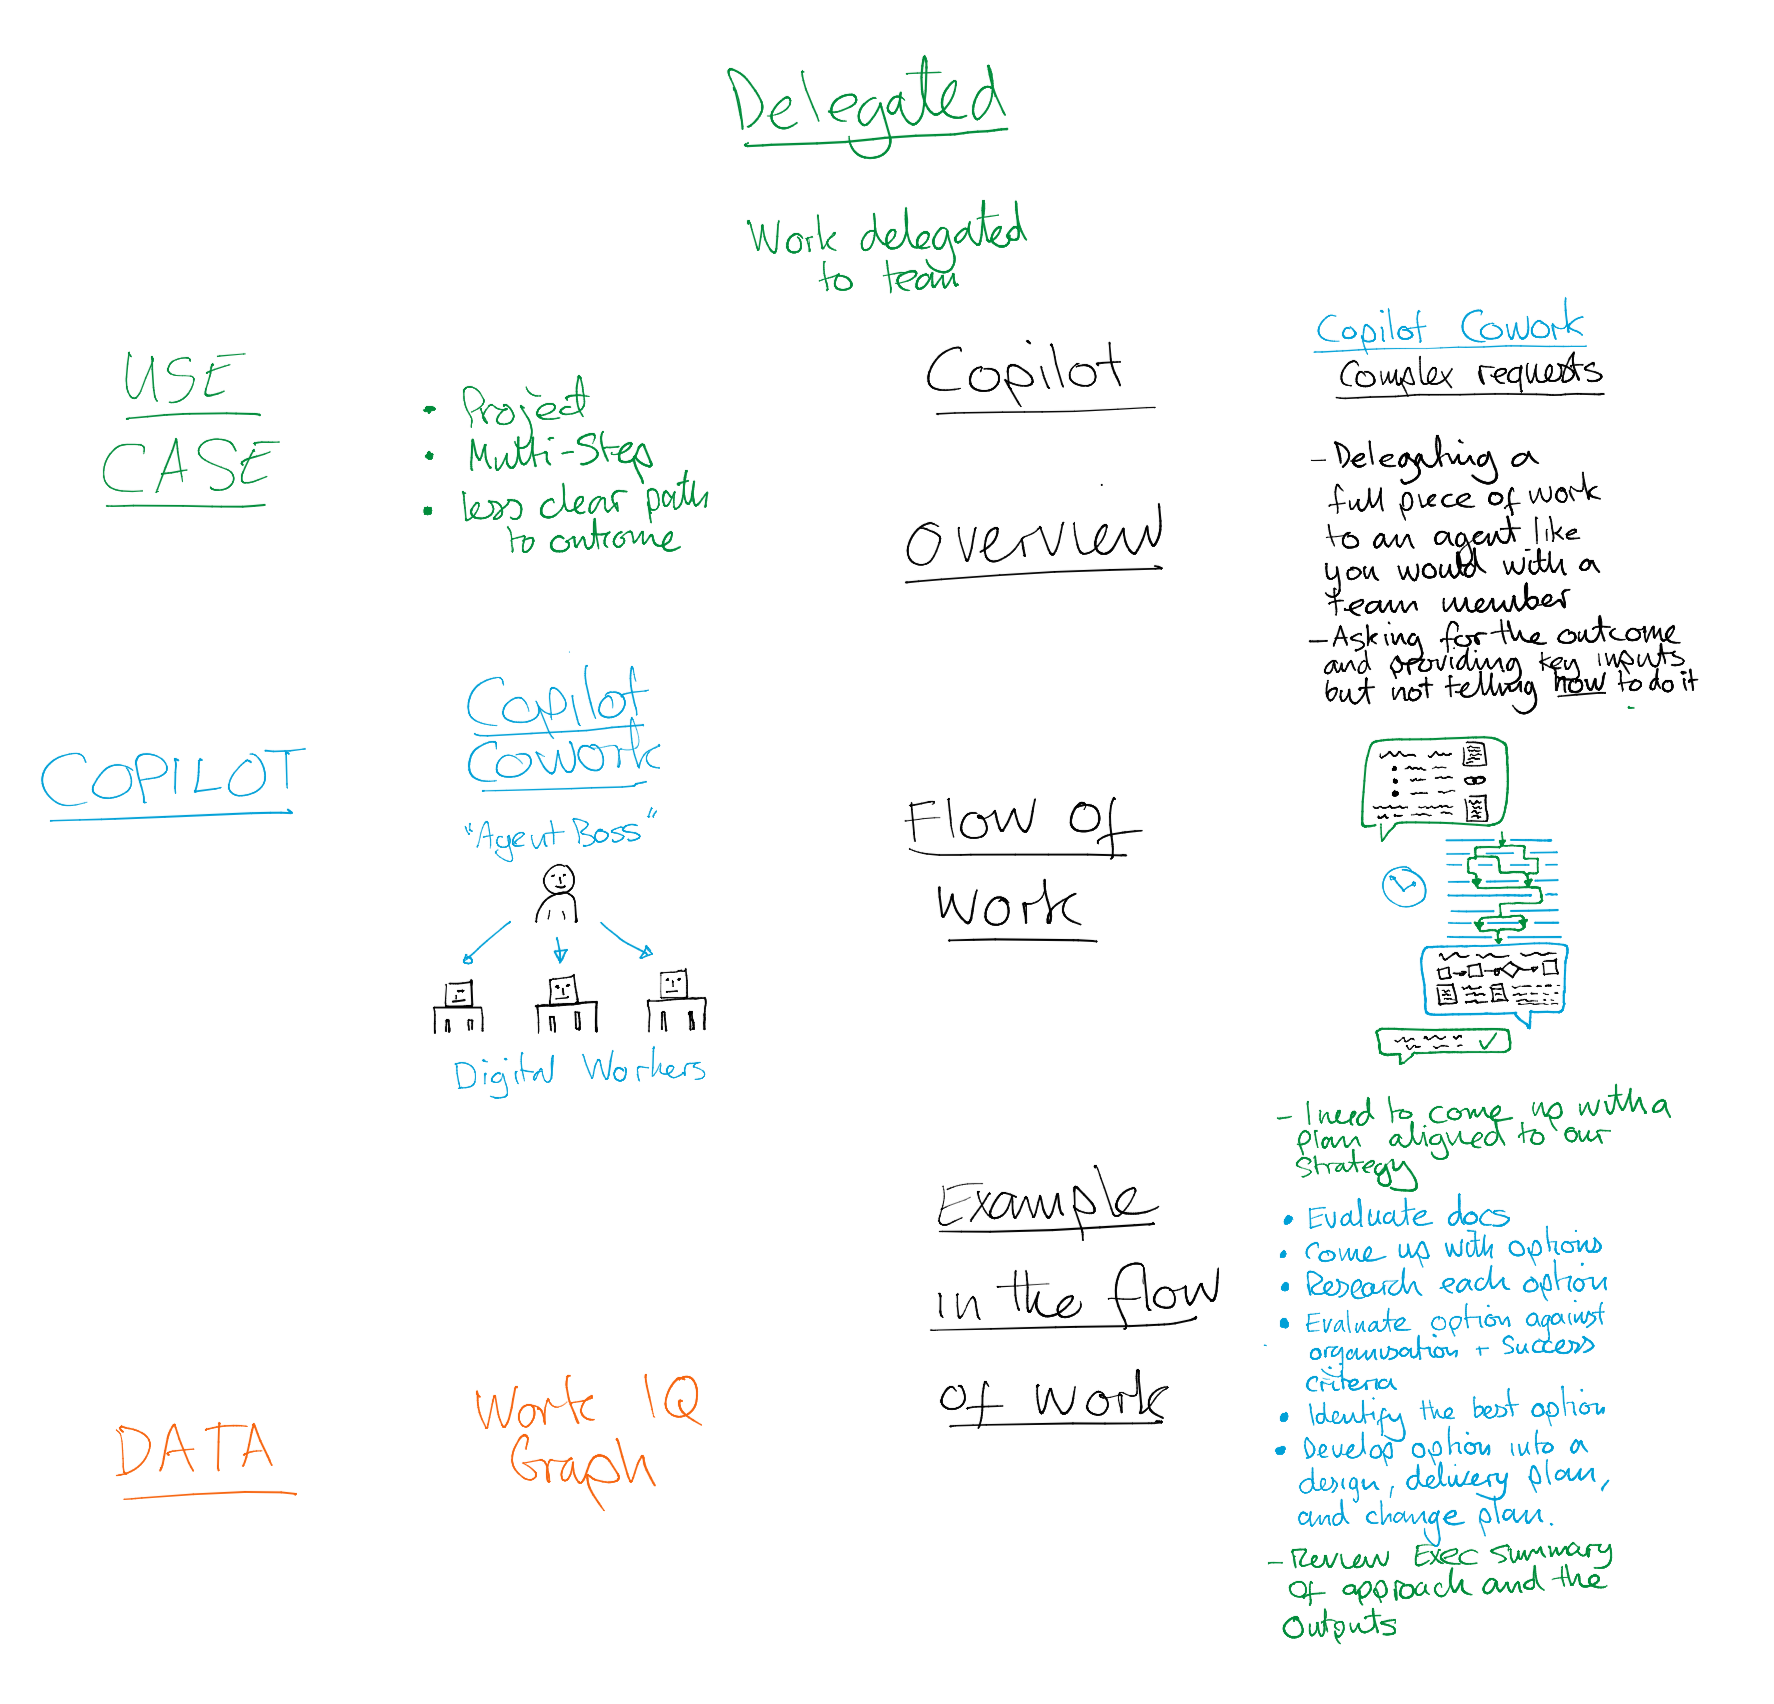 Delegated
Work delegated
to team
USE
CASE
• Project
• Multi-Step
• less clear path
to outcome
COPILOT
Copilot
Cowork
"Agent Boss"
Digital Workers
DATA
Work IQ
Graph
Copilot
Copilot Cowork
Complex requests
Overview
- Delegating a
full piece of work
to an agent like
you would with a
team member
- Asking for the outcome
and providing key inputs
but not telling how to do it
Flow Of
Work
Example
in the flow
Of Work
- I need to come up with a
plan aligned to our
strategy
• Evaluate docs
• Come up with options
• Research each option
• Evaluate option against
organisation + Success
criteria
• Identify the best option
• Develop option into a
design, delivery plan,
and change plan.
- Review Exec summary
Of approach and the
Outputs